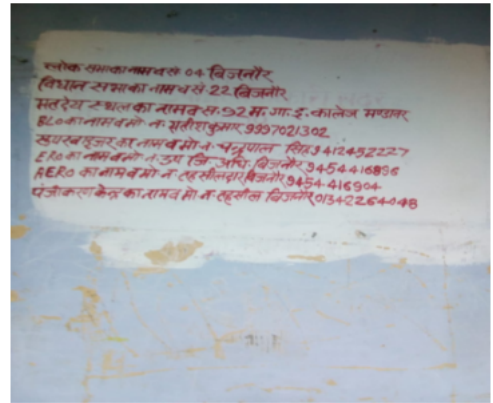 लोक सभा का नाम व सं. 04 बिजनौर
विधान सभा का नाम व सं. 22 बिजनौर
मतदेय स्थल का नाम व स. 92 म. गा. इ. कालेज मण्डावर
BLO का नाम व मो. न. सतीश कुमार 9997021302
सुपरवाइजर का नाम व मो न. चन्द्रपाल सिंह 9412452227
ERO का नाम व मो न. उप जि. अधि. बिजनौर 9454416896
AERO का नाम व मो न. तहसीलदार बिजनौर 9454416904
पंजीकरण केन्द्र का नाम व मो न तहसील बिजनौर 01342264048